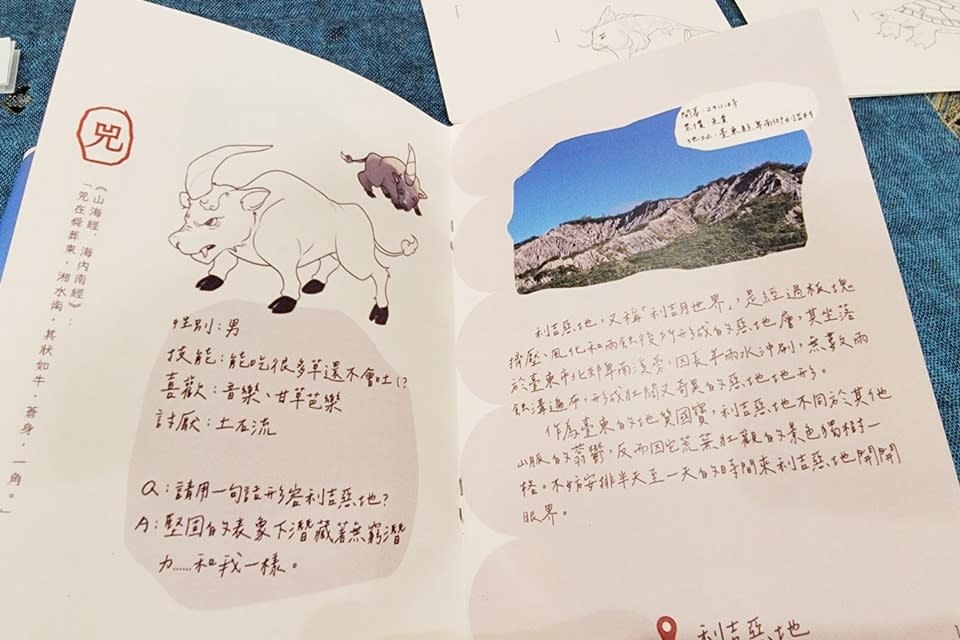 兕
《山海經．海內南經》：
「兕在舜葬東，湘水南，其狀如牛，蒼身，一角。」
性別：男
技能：能吃很多草還不會吐(?
喜歡：音樂、甘草芭樂
討厭：土石流
Q：請用一句話形容利吉惡地？
A：堅固的表象下潛藏著無窮潛
力……和我一樣。
時
票價：免費
地址：臺東縣卑南鄉利吉村
利吉惡地，又稱「利吉月世界」，是經過板塊
擠壓、風化和雨蝕後所形成的惡地層，其坐落
於臺東市北郊卑南溪旁，因長年雨水沖刷，無數雨
蝕溝遍布，形成壯闊又奇異的惡地地形。
作為臺東的地質國寶，利吉惡地不同於其他
山脈的蓊鬱，反而因它荒蕪壯觀的景色獨樹一
格。不妨安排半天至一天的時間來利吉惡地開開
眼界。
利吉惡地